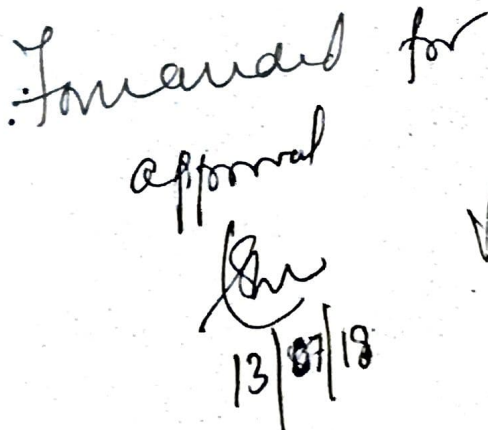 Forwarded for
approval
13/07/18